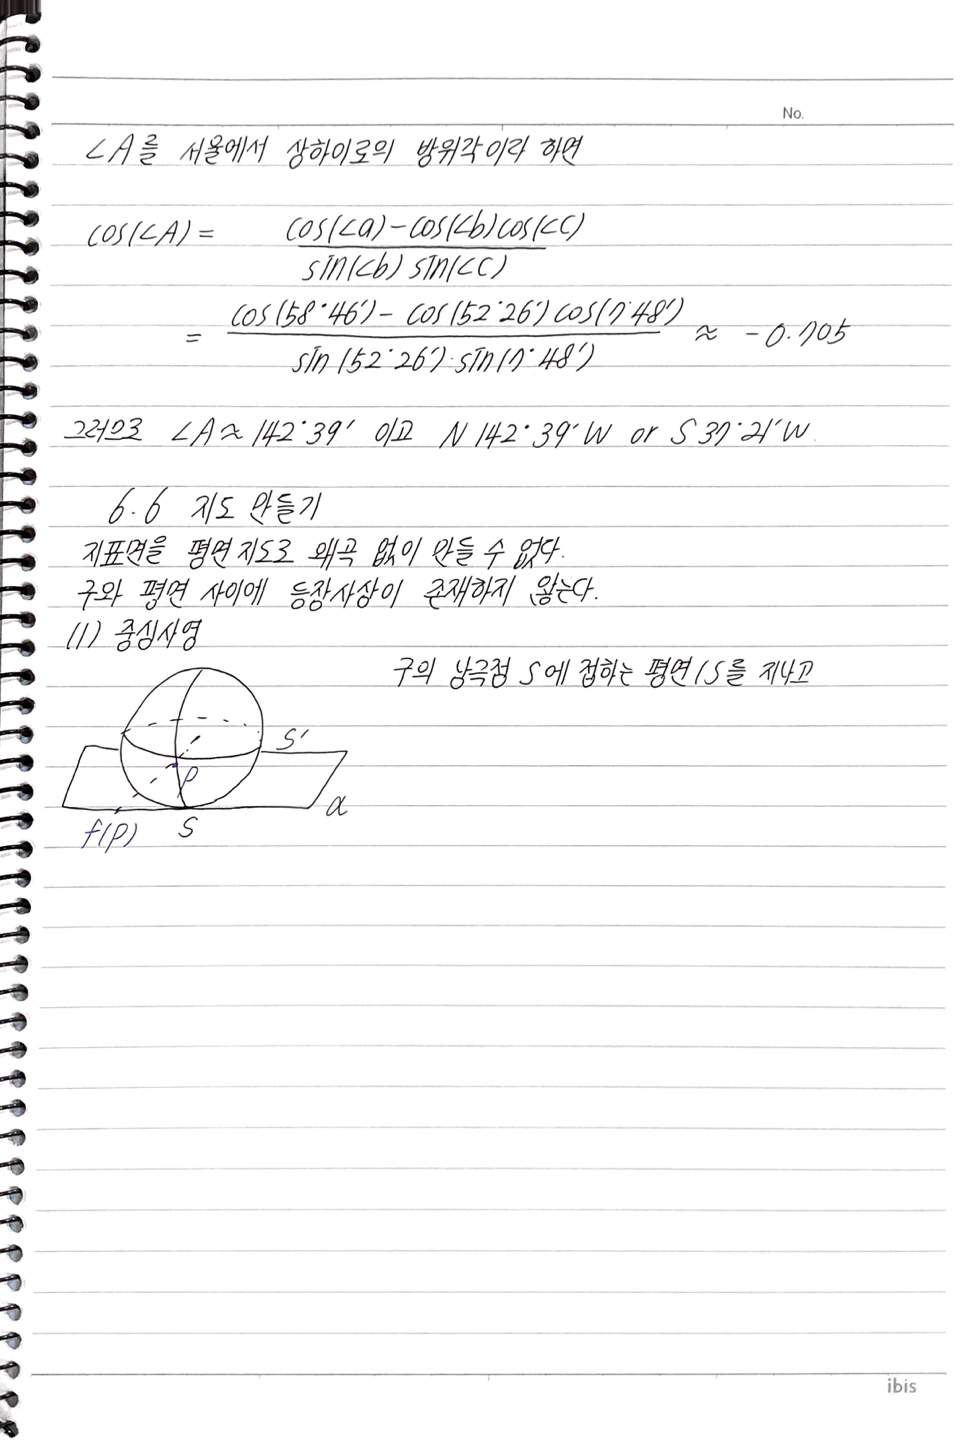 No.
∠A를 서울에서 상하이로의 방위각이라 하면
cos(∠A) = cos(∠a) - cos(∠b)cos(∠c)
sin(∠b) sin(∠c)
= cos(58°46′) - cos(52°26′) cos(7°48′) ≈ -0.705
sin(52°26′)·sin(7°48′)
그러므로 ∠A ≈ 142°39′ 이고 N 142°39′ W or S 37°21′ W.
6.6 지도 만들기
지표면을 평면지도로 왜곡 없이 만들 수 없다.
구와 평면 사이에 등장사상이 존재하지 않는다.
(1) 중심사영
구의 남극점 S에 접하는 평면(S를 지나고
S′
P
α
f(P) S
ibis